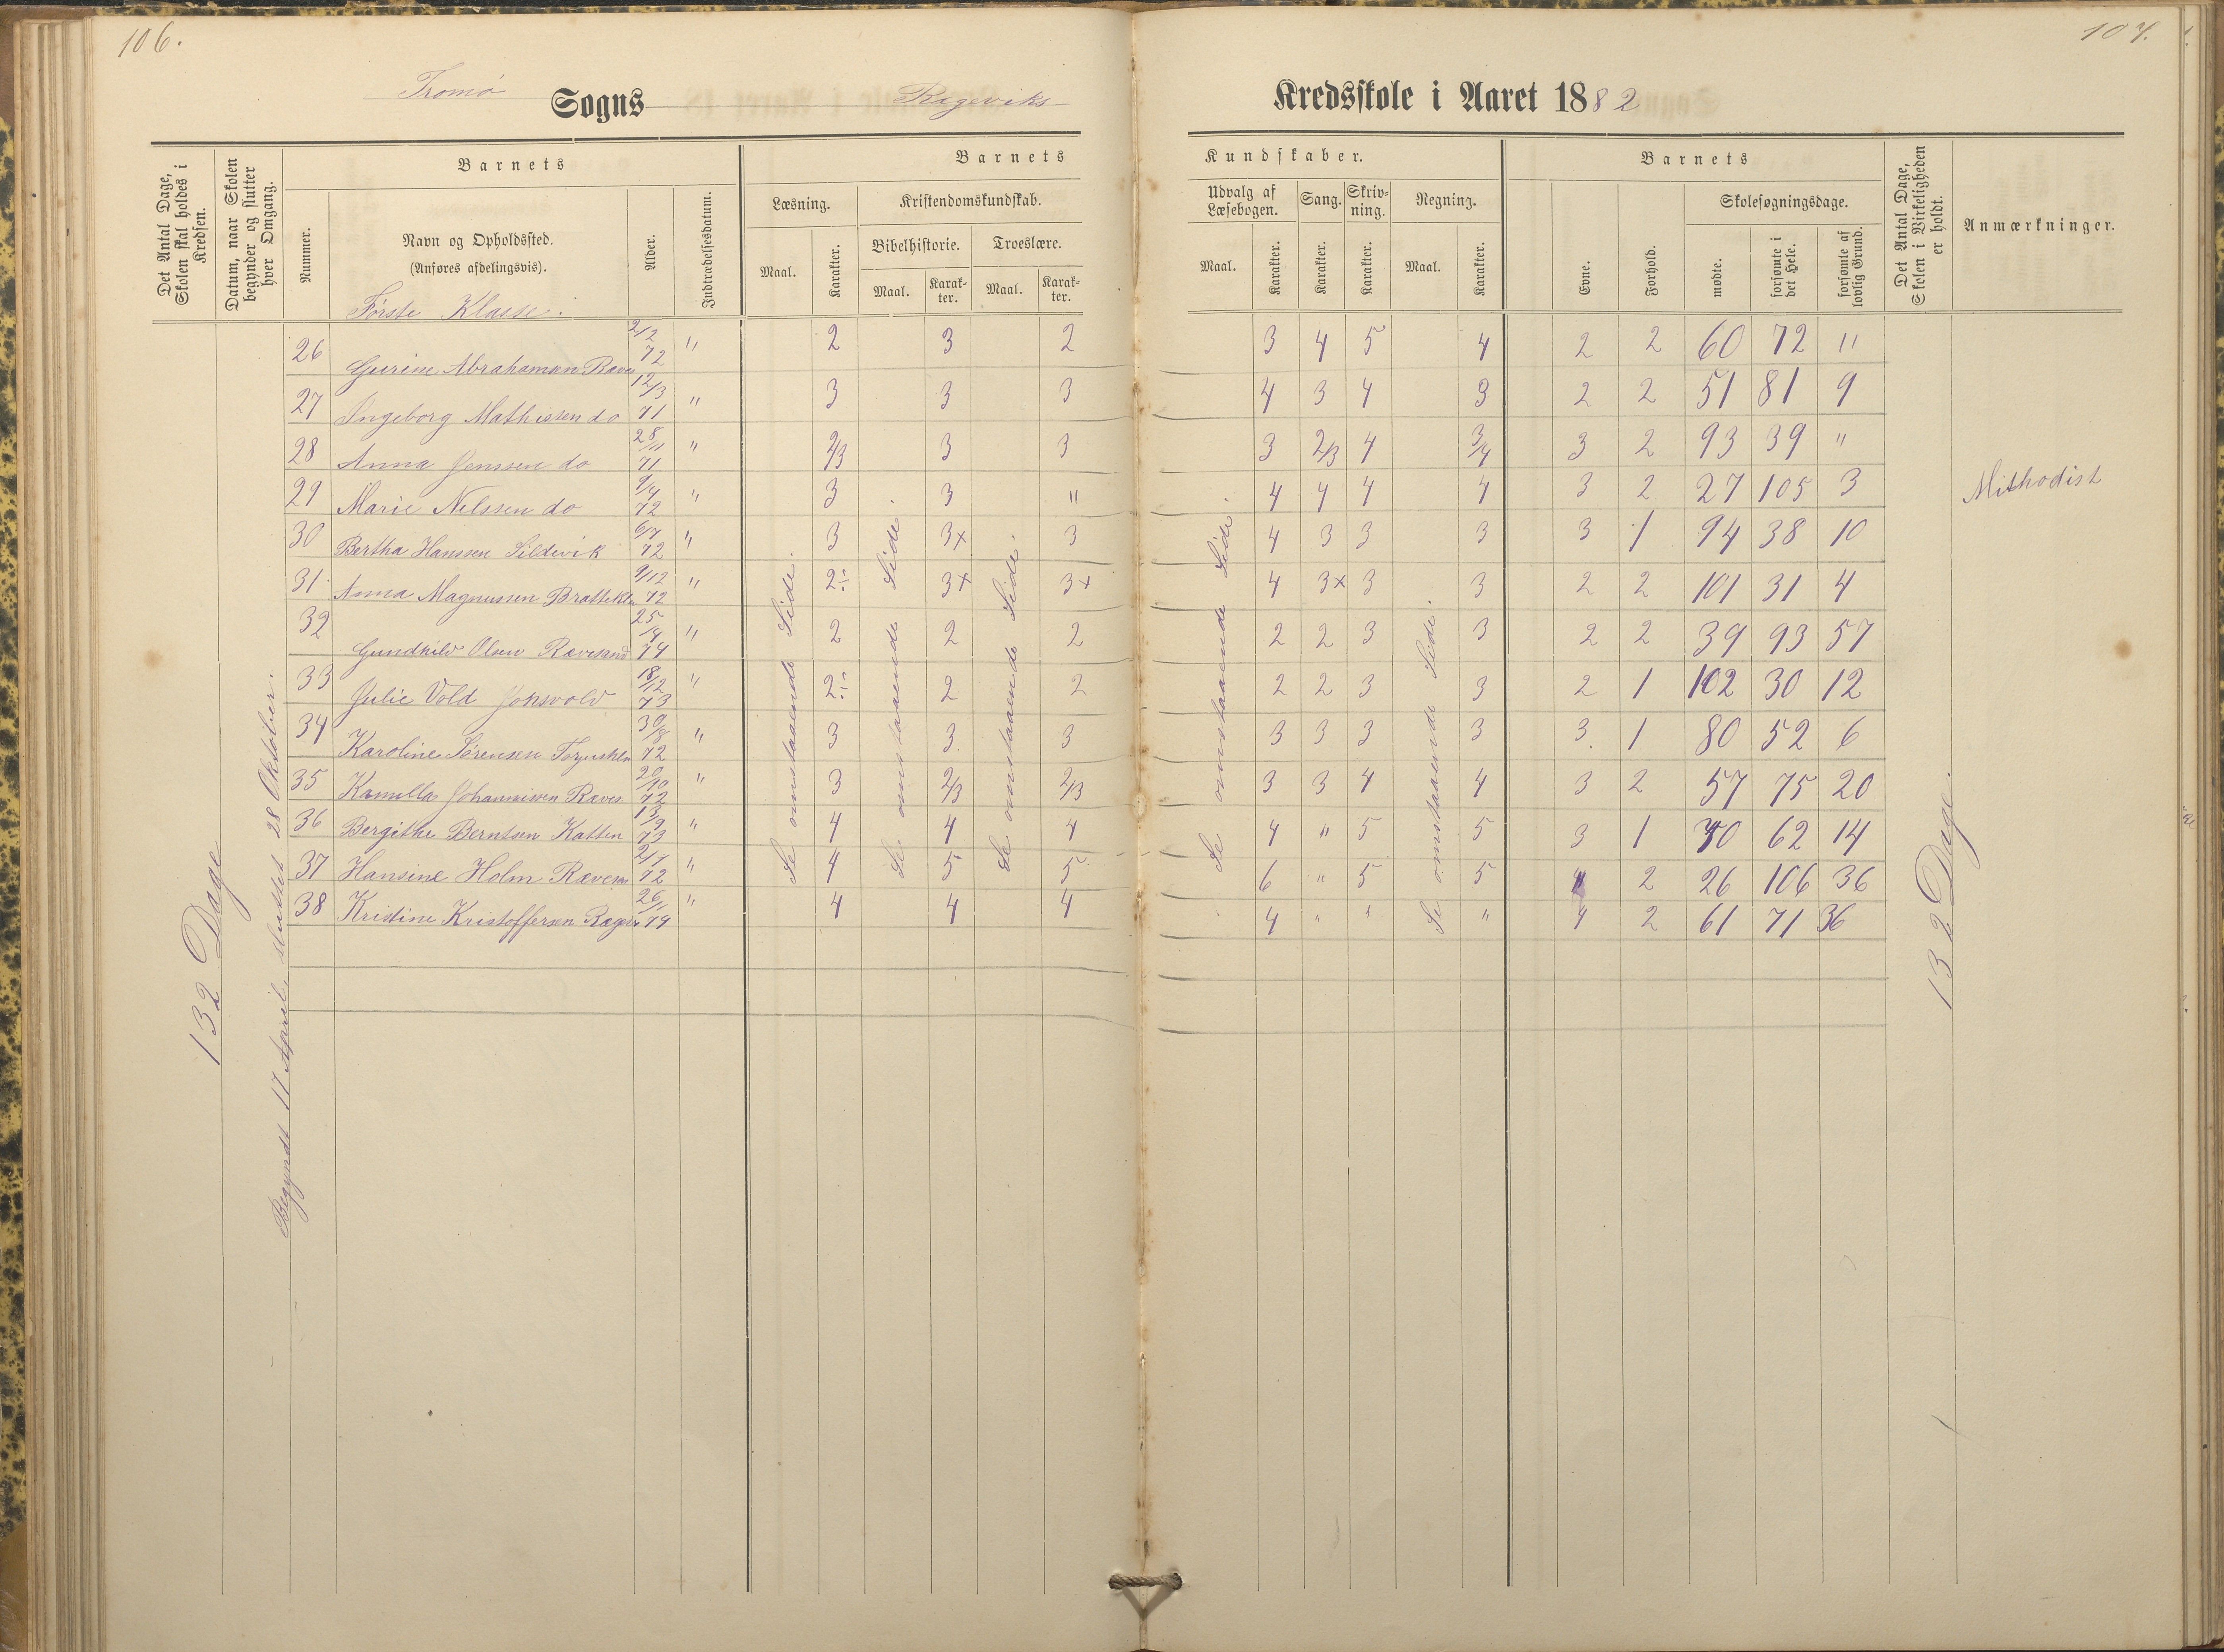 106.
107.
Tromø Sogns Rægeviks Kredsskole i Aaret 1882
Det Antal Dage, Skolen skal holdes i Kredsen.
Datum, naar Skolen begynder og slutter hver Omgang.
Barnets
Nummer.
Navn og Opholdssted.
(Anføres afdelingsvis).
Første Klasse.
Alder.
Indtrædelsesdatum.
Barnets Kundskaber.
Læsning.
Maal.
Karakter.
Kristendomskundskab.
Bibelhistorie.
Maal.
Karakter.
Troeslære.
Maal.
Karakter.
Udvalg af Læsebogen.
Maal.
Karakter.
Sang.
Karakter.
Skrivning.
Karakter.
Regning.
Maal.
Karakter.
Barnets
Evne.
Forhold.
Skolesøgningsdage.
mødte.
forsømte i det Hele.
forsømte af lovlig Grund.
Det Antal Dage, Skolen i Virkeligheden er holdt.
Anmærkninger.
132 Dage
Begyndt 17 April, sluttet 28 Oktober.
Se omstaaende Side.
Se omstaaende Side.
Se omstaaende Side.
Se omstaaende Side.
Se omstaaende Side.
132 Dage.
26 Gurine Abrahamsen Raves 2/2 72 " 2 3 2 3 4 5 4 2 2 60 72 "
27 Ingeborg Mathissen do 12/3 71 " 3 3 3 4 3 4 3 2 2 51 81 9
28 Anna Jenssen do 28/11 71 " 2/3 3 3 3 2/3 4 3/4 3 2 93 39 "
29 Marie Nilssen do 9/4 72 " 3 3 " 4 4 4 4 3 2 27 105 3 Mithodist
30 Bertha Hanssen Sildevik 6/7 72 " 3 3x 3 4 3 3 3 3 1 94 38 10
31 Anna Magnussen Brattekle 9/12 72 " 2÷ 3x 3x 4 3x 3 3 2 2 101 31 4
32 Gundhild Olsen Ravesand 25/4 74 " 2 2 2 2 2 3 3 2 2 39 93 57
33 Julie Vold Jonsvold 18/12 73 " 2÷ 2 2 2 2 3 3 2 1 102 30 12
34 Karoline Sørensen 30/8 72 " 3 3 3 3 3 3 3 3 1 80 52 6
35 Kamilla Johannissen Raves 20/10 72 " 3 2/3 2/3 3 3 4 4 3 2 57 75 20
36 Bergithe Berntsen Katten 13/9 73 " 4 4 4 4 " 5 5 3 1 70 62 14
37 Hansine Holm Ravesan 2/1 72 " 4 5 5 6 " 5 5 4 2 26 106 36
38 Kristine Kristoffersen Rægev 26/11 74 " 4 4 4 4 " " " 4 2 61 71 36